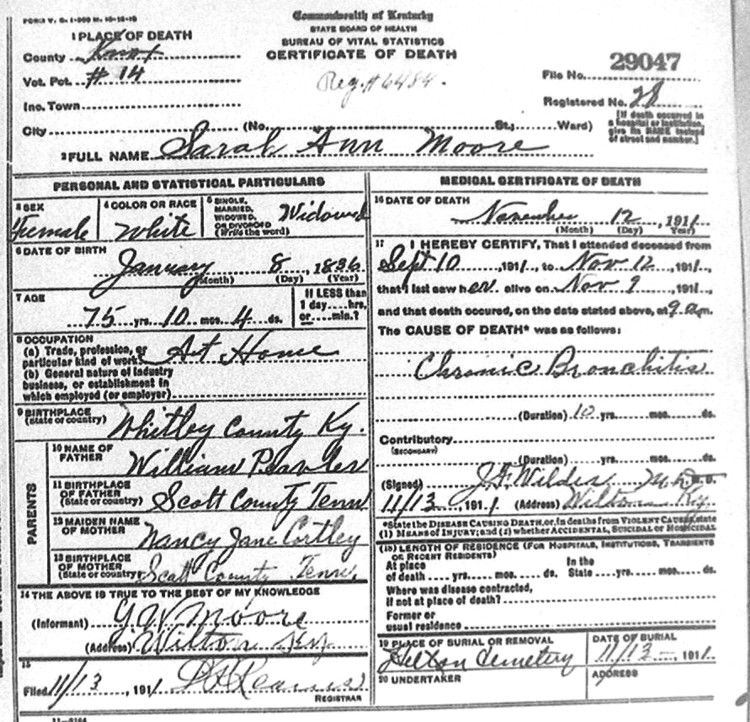 FORM V. S. 1-
Commonwealth of Kentucky
STATE BOARD OF HEALTH
BUREAU OF VITAL STATISTICS
CERTIFICATE OF DEATH
1 PLACE OF DEATH
County Knox
Vot. Pct. # 14
Inc. Town
City
(No. St.; Ward)
Reg. # 6484
29047
File No.
Registered No. 28
[If death occurred in
a hospital or institution,
give its NAME instead
of street and number.]
2 FULL NAME Sarah Ann Moore
PERSONAL AND STATISTICAL PARTICULARS
3 SEX
Female
4 COLOR OR RACE
White
5 SINGLE,
MARRIED,
WIDOWED,
OR DIVORCED
(Write the word)
Widowed
6 DATE OF BIRTH
January 8, 1836
(Month) (Day) (Year)
7 AGE
75 yrs. 10 mos. 4 ds.
If LESS than
1 day....hrs.
or....min.?
8 OCCUPATION
(a) Trade, profession, or
particular kind of work At Home
(b) General nature of industry
business, or establishment in
which employed (or employer)
9 BIRTHPLACE
(State or country) Whitley County Ky.
PARENTS
10 NAME OF
FATHER William
11 BIRTHPLACE
OF FATHER
(State or country) Scott County Tenn
12 MAIDEN NAME
OF MOTHER Nancy Jane
13 BIRTHPLACE
OF MOTHER
(State or country) Scott County Tenn.
14 THE ABOVE IS TRUE TO THE BEST OF MY KNOWLEDGE
(Informant) G W Moore
(Address) Wilton Ky
15
Filed 11/13, 1911
REGISTRAR
MEDICAL CERTIFICATE OF DEATH
16 DATE OF DEATH
November 12, 1911
(Month) (Day) (Year)
17 I HEREBY CERTIFY, That I attended deceased from
Sept 10, 1911, to Nov 12, 1911,
that I last saw her alive on Nov 9, 1911,
and that death occured, on the date stated above, at 9 a.m.
The CAUSE OF DEATH* was as follows:
Chronic Bronchitis
(Duration) 10 yrs. mos. ds.
Contributory
(SECONDARY)
(Duration) yrs. mos. ds.
(Signed) J. F. Wilder M.D.
11/13, 1911 (Address) Wilton Ky
*State the DISEASE CAUSING DEATH, or, in deaths from VIOLENT CAUSES, state
(1) MEANS OF INJURY; and (2) whether ACCIDENTAL, SUICIDAL or HOMICIDAL
(18) LENGTH OF RESIDENCE (FOR HOSPITALS, INSTITUTIONS, TRANSIENTS
OR RECENT RESIDENTS)
At place
of death yrs. mos. ds.
In the
State yrs. mos. ds.
Where was disease contracted,
if not at place of death?
Former or
usual residence
19 PLACE OF BURIAL OR REMOVAL
Cemetery
DATE OF BURIAL
11/13, 1911
20 UNDERTAKER
ADDRESS